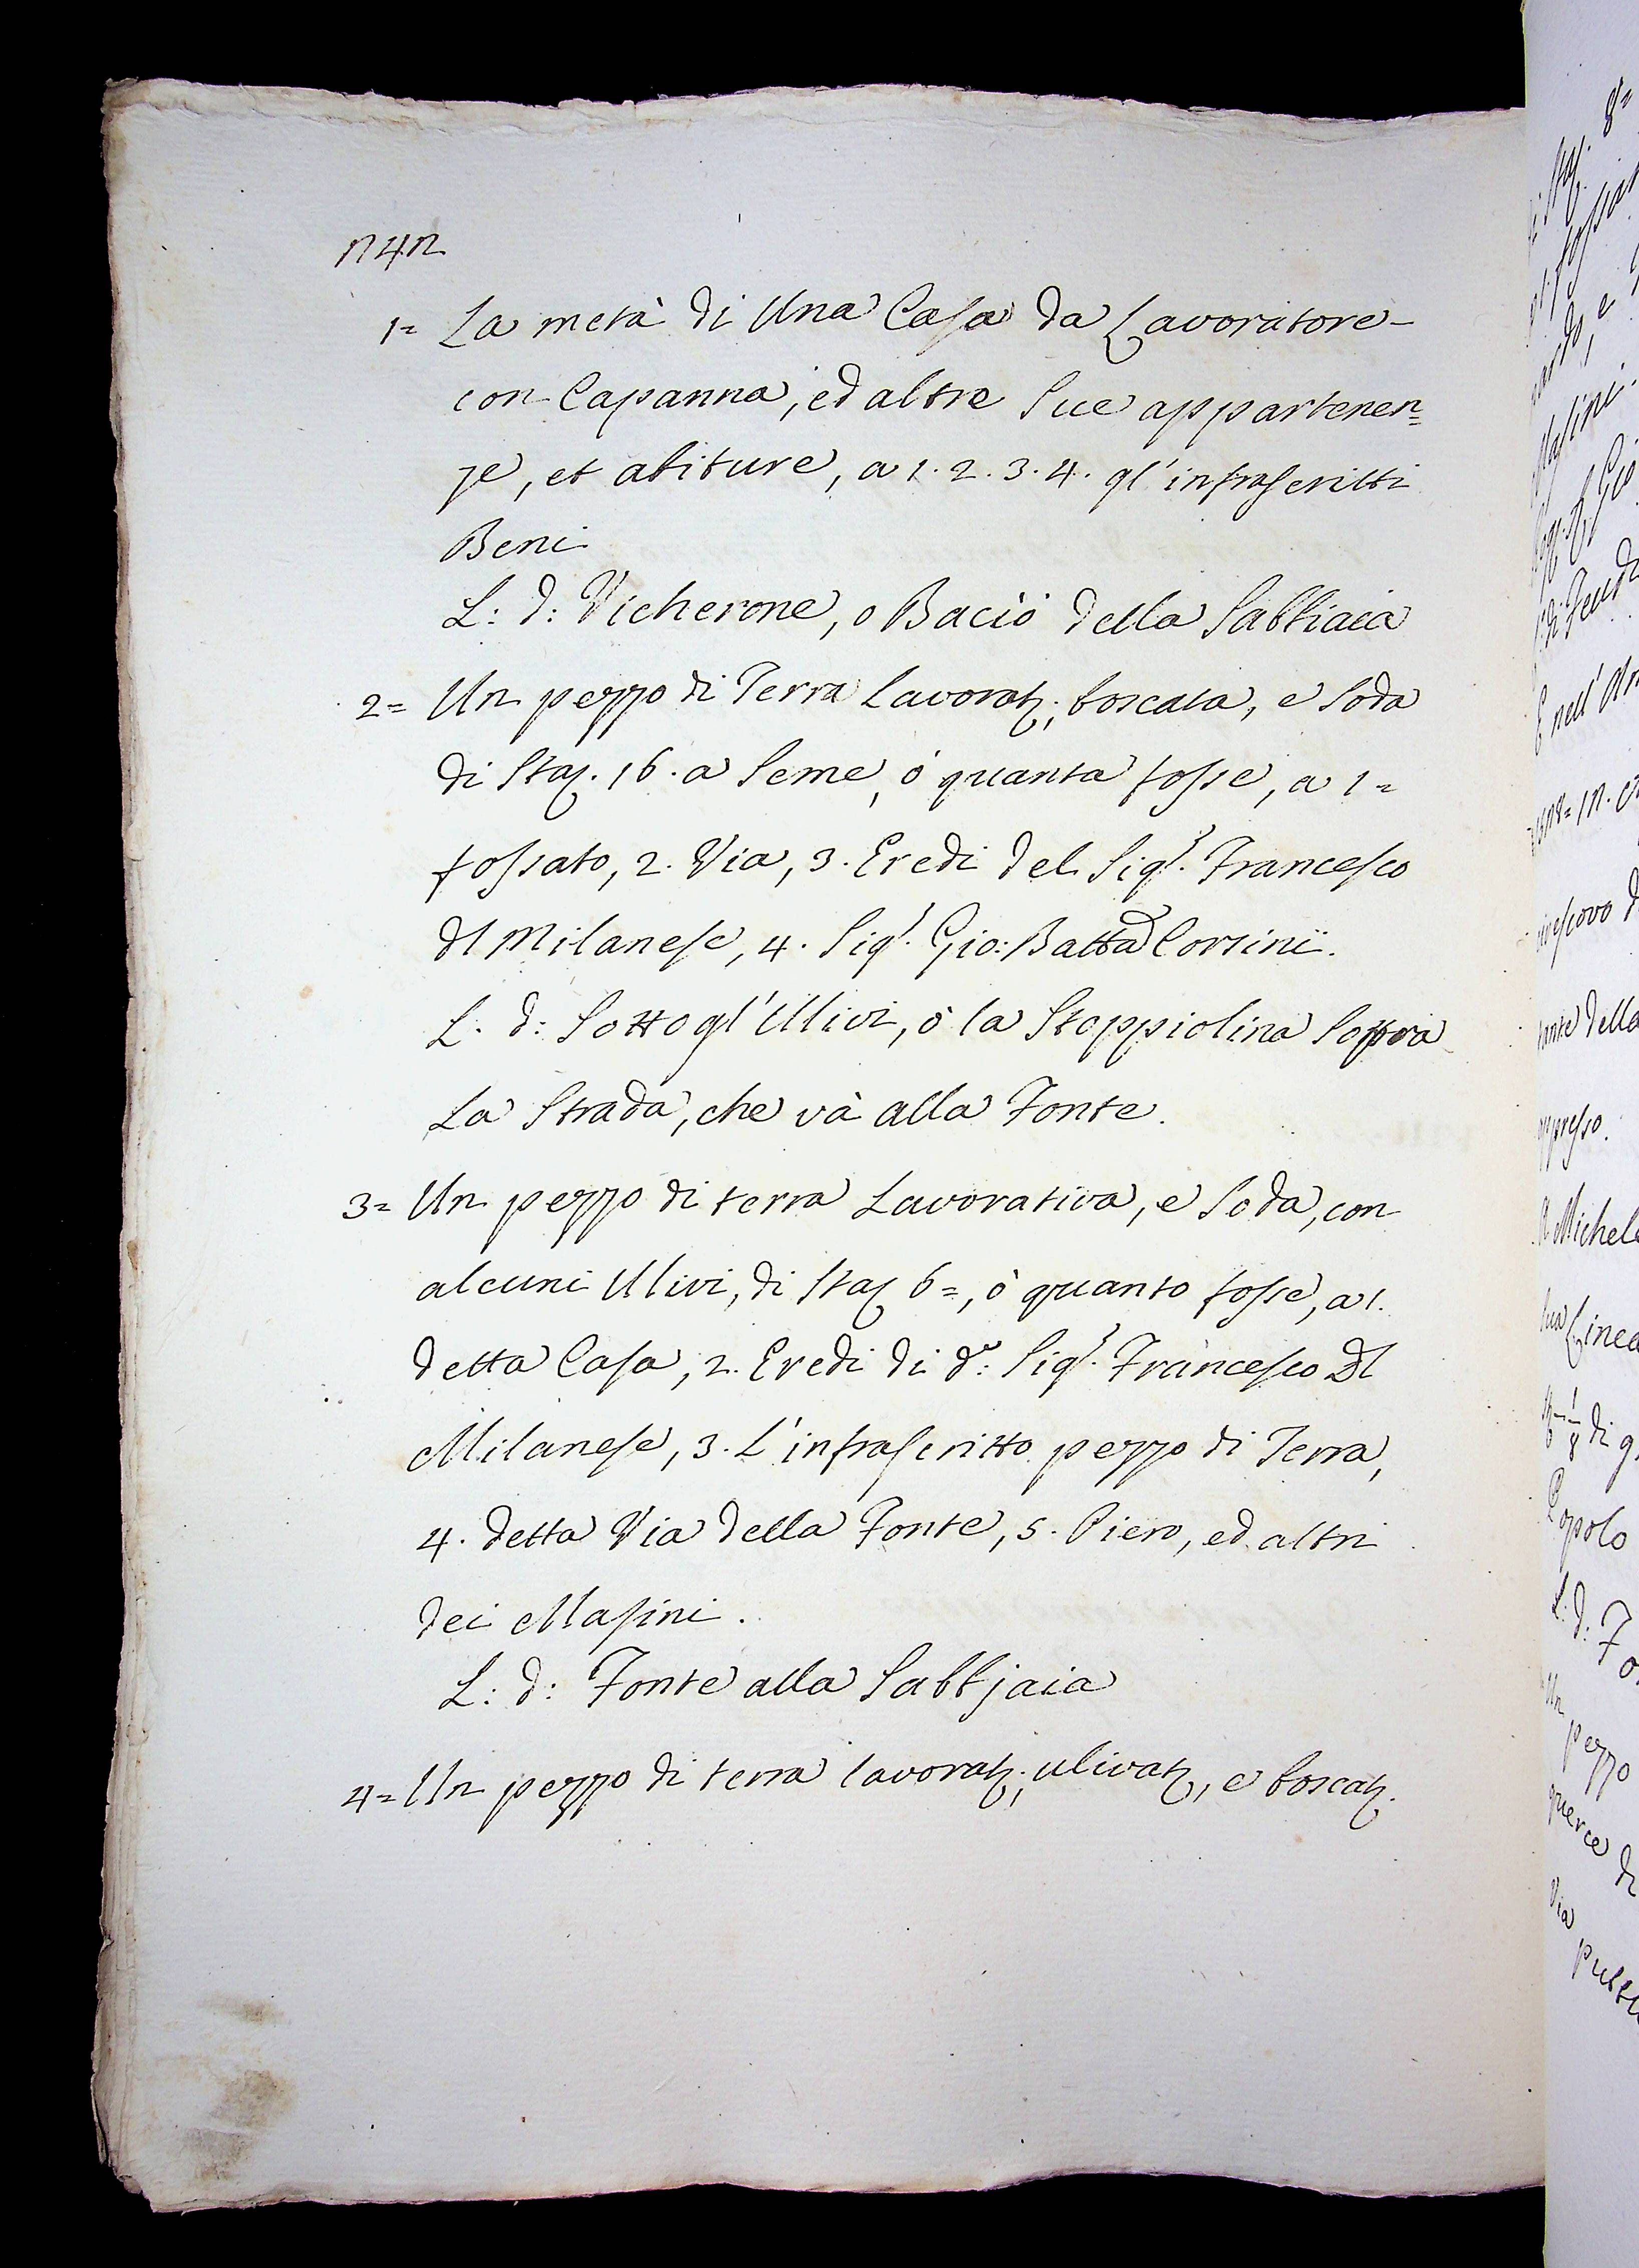 n4n
1= La metà di Una Casa da Lavoratore-
con Capanna, ed altre Sue appartenen=
ze, et abiture, a 1. 2. 3. 4. gl'infrascritti
Beni
L: d: Vicherone, o Baciò della Sabbiaia
2= Un pezzo di Terra Lavorat:, boscata, e Soda
di Staj. 16. a Seme, ò quanta fosse, a 1=
fossato, 2. Via, 3. Eredi del Sigr. Francesco
Dl Milanese, 4. Sigr. Gio: Batta Corsini.
L. d: Sotto gl'Ulivi, ò la Stoppiolina Soppra
La Strada, che và alla Fonte.
3= Un pezzo di terra Lavorativa, e Soda, con
alcuni Ulivi, di Staj 6=, ò quanto fosse, a 1.
detta Casa, 2. Eredi di do: Sigr. Francesco Dl
Milanese, 3. L'infrascritto pezzo di Terra,
4. detta Via della Fonte, 5. Piero, ed altri
dei Masini.
L: d: Fonte alla Sabbjaia
4= Un pezzo di terra lavorat:, ulivat:, e boscat:
Masini.
E nell'
della
oppresso.
Michele
Linea
di
Popolo
L: d:
Un pezzo
querce di
Via